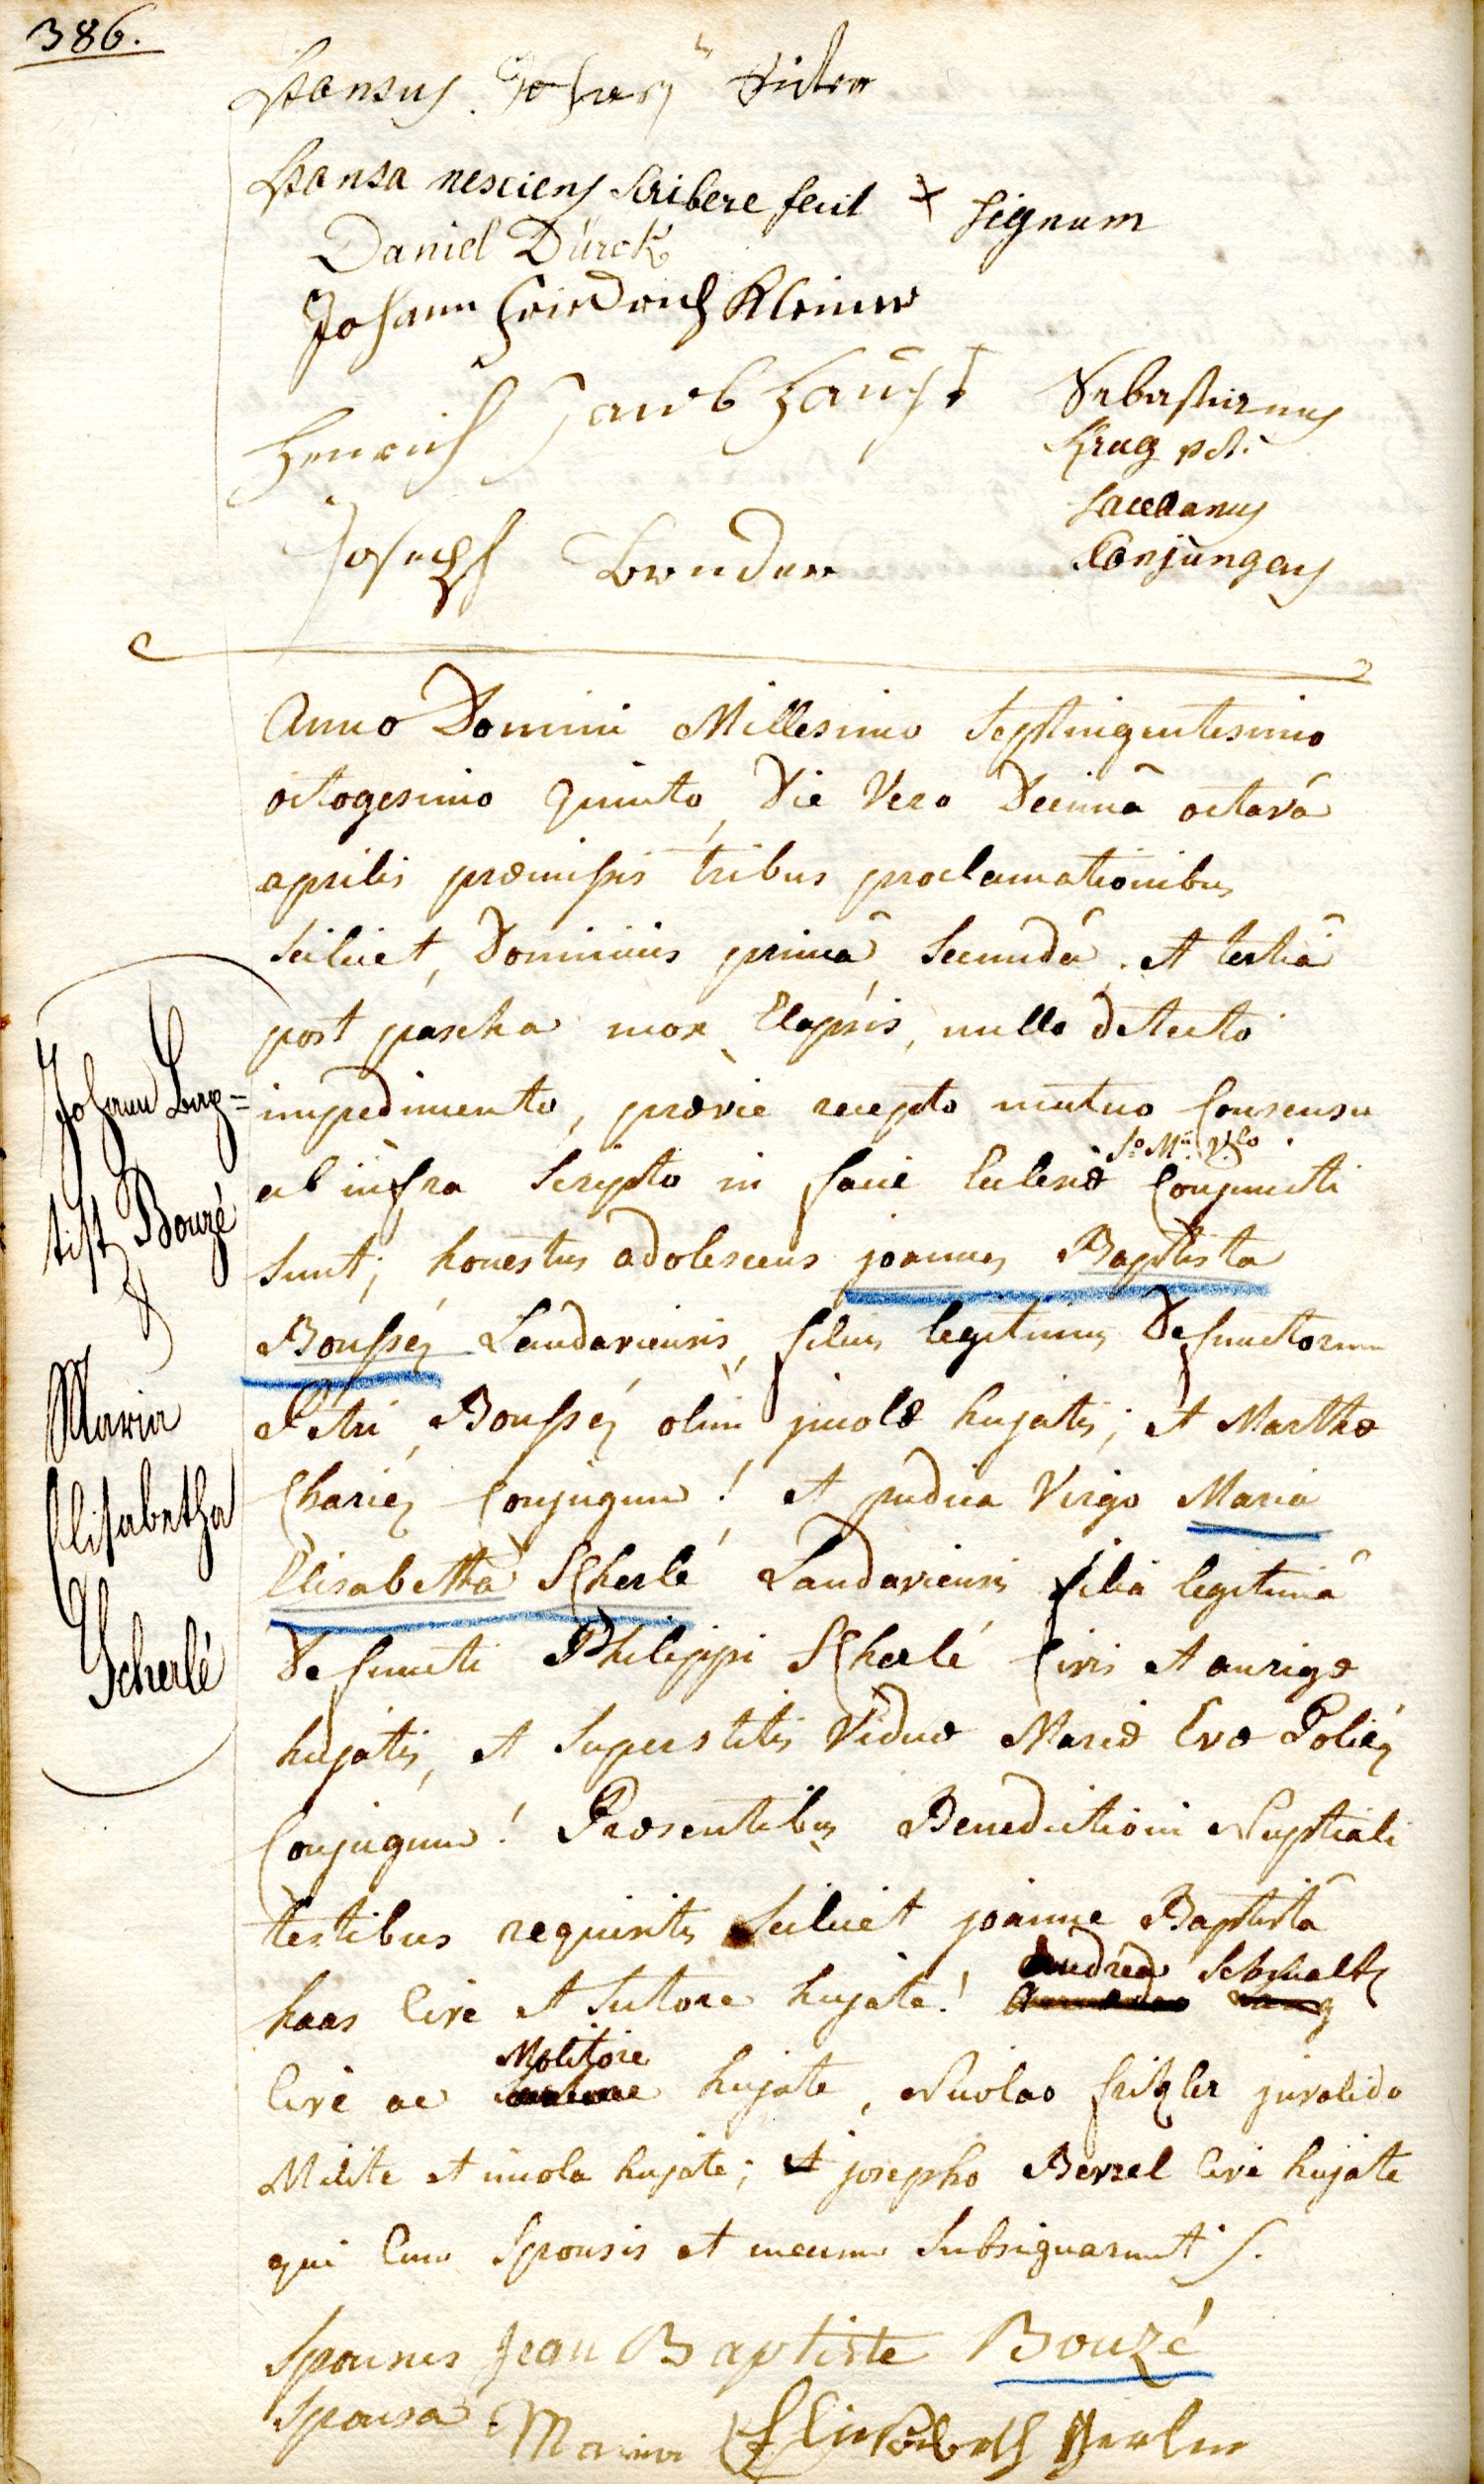 386.
Sponsus
Sponsa nesciens scribere fecit x signum
Daniel Dürck
Johann Friedrich Kleiner
Henrich Jacob
Sebastianus
Krug
Sacellanus
Conjungens
Joseph Brender
Anno Domini Millesimo Septingentesimo
octogesimo quinto, Die Vero Decimâ octavâ
aprilis præmissis tribus proclamationibus
scilicet, Dominicis primâ, secundâ, et tertiâ
post pascha mox Elapsis, nullo detecto
impedimento, prævie recepto mutuo Consensu
ab infra scripto in facie Ecclesiæ Conjuncti
sunt; honestus adolescens joannes Baptista
Boussey Landaviensis, filius legitimus Defunctorum
Petri Boussey olim jncolæ hujatis; et Marthæ
Chariéz Conjugum! et pudica Virgo Maria
Elisabetha Scherlé Landaviensis filia legitima
Defuncti Philippi Scherlé Civis et aurigæ
hujatis, et superstitis Viduæ Mariæ Evæ
Conjugum! Præsentibus Benedictioni Nuptiali
testibus requisitis scilicet joanne Baptistâ
haas Cive et Sutore hujate! Andrea Schmaltz
Cive ac Molitore hujate, Nicolao fritzler jnvalido
Milite et incola hujate; et josepho Berzel Cive hujate
qui Cum Sponsis et mecum Subsignarunt
Sponsus Jean Baptiste Bouzé
Sponsa Maria Elisabeth
Johann Bap=
tist Bouzé
Maria
Elisabetha
Scherlé